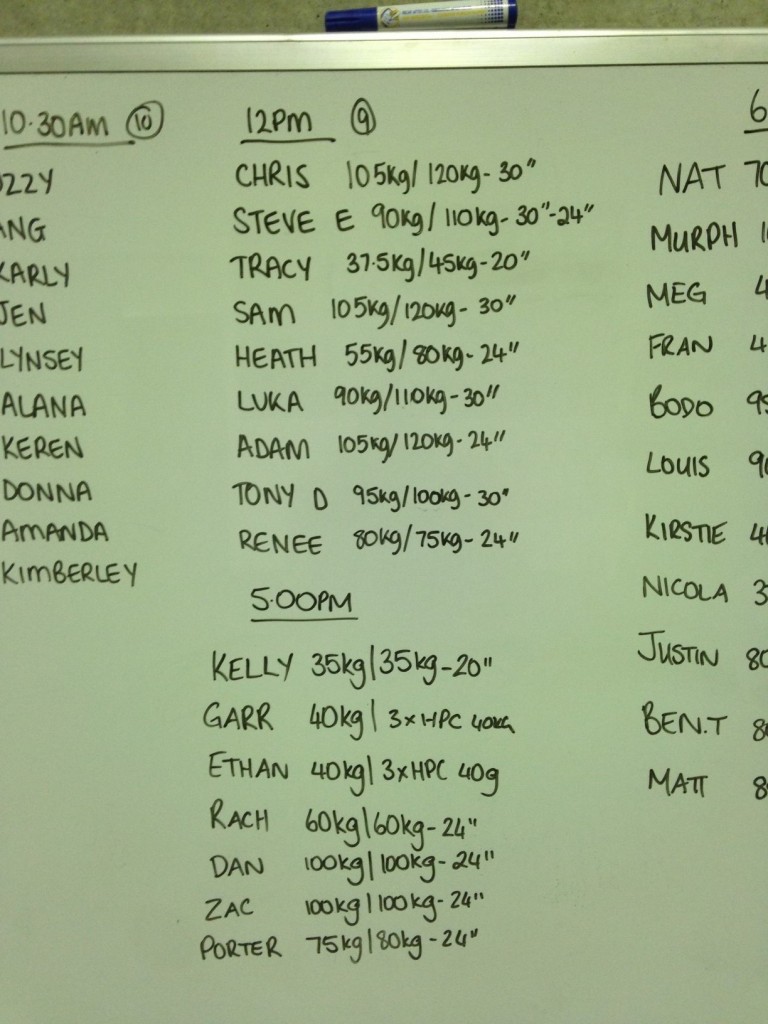 10.30AM 10
OZZY
ANG
KARLY
JEN
LYNSEY
ALANA
KEREN
DONNA
AMANDA
KIMBERLEY
12PM 9
CHRIS 105kg/120kg-30"
STEVE E 90kg/110kg-30"-24"
TRACY 37.5kg/45kg-20"
SAM 105kg/120kg-30"
HEATH 55kg/80kg-24"
LUKA 90kg/110kg-30"
ADAM 105kg/120kg-24"
TONY D 95kg/100kg-30"
RENEE 80kg/75kg-24"
5.00PM
KELLY 35kg/35kg-20"
GARR 40kg/3xHPC 40kg
ETHAN 40kg/3xHPC 40g
RACH 60kg/60kg-24"
DAN 100kg/100kg-24"
ZAC 100kg/100kg-24"
PORTER 75kg/80kg-24"
6
NAT 70
MURPH 1
MEG 4
FRAN 4
BODO 95
LOUIS 90
KIRSTIE 4
NICOLA 3
JUSTIN 80
BEN.T 8
MATT 8